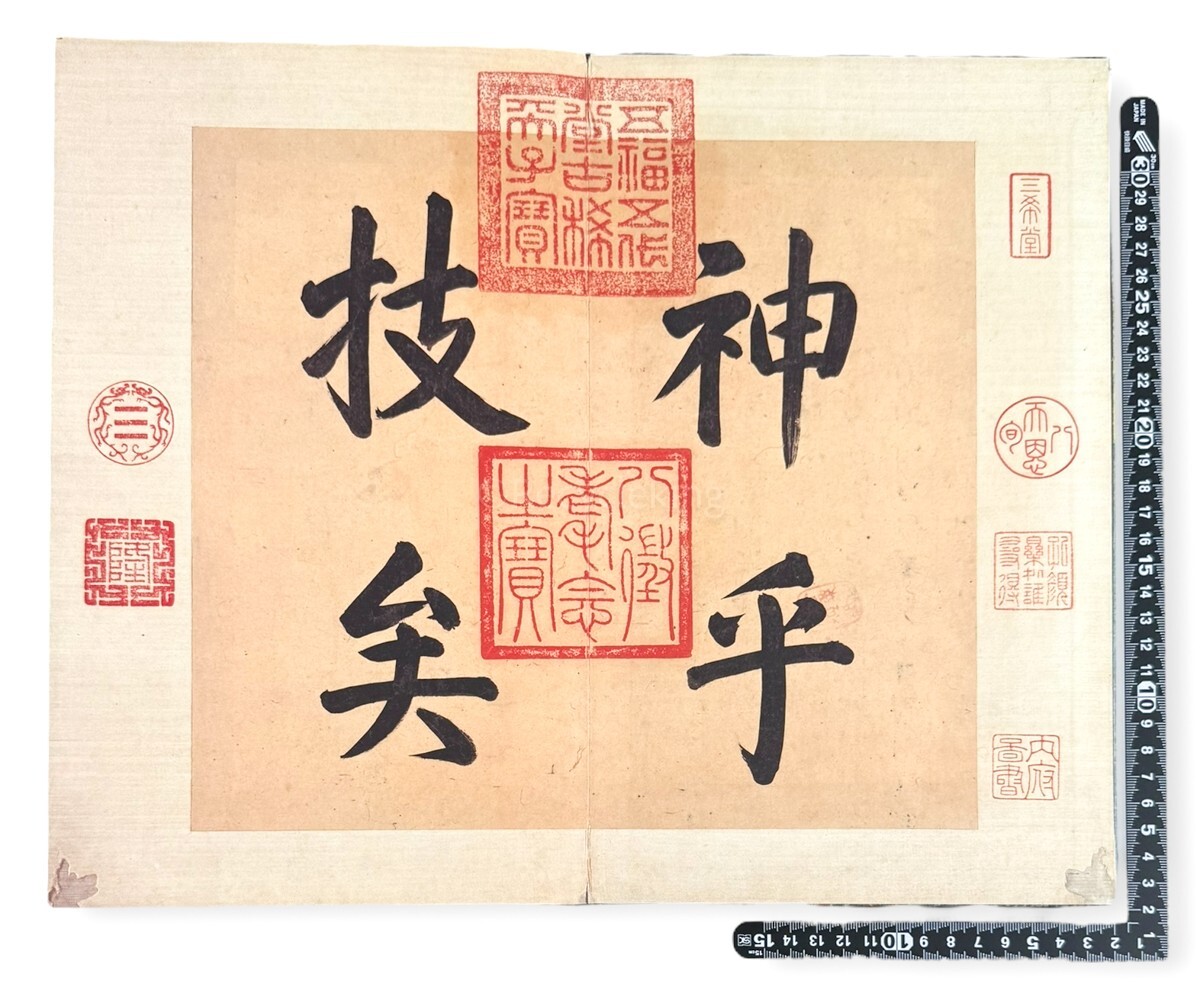 神乎
技矣
五福五代
堂古稀
天子寶
八徵
耄念
之寶
三希堂
八旬天恩
內府
圖書
隆
MADE IN
JAPAN
30 29 28 27 26 25 24 23 22 21 20 19 18 17 16 15 14 13 12 11 10 9 8 7 6 5 4 3 2 1
15 14 13 12 11 10 9 8 7 6 5 4 3 2 1